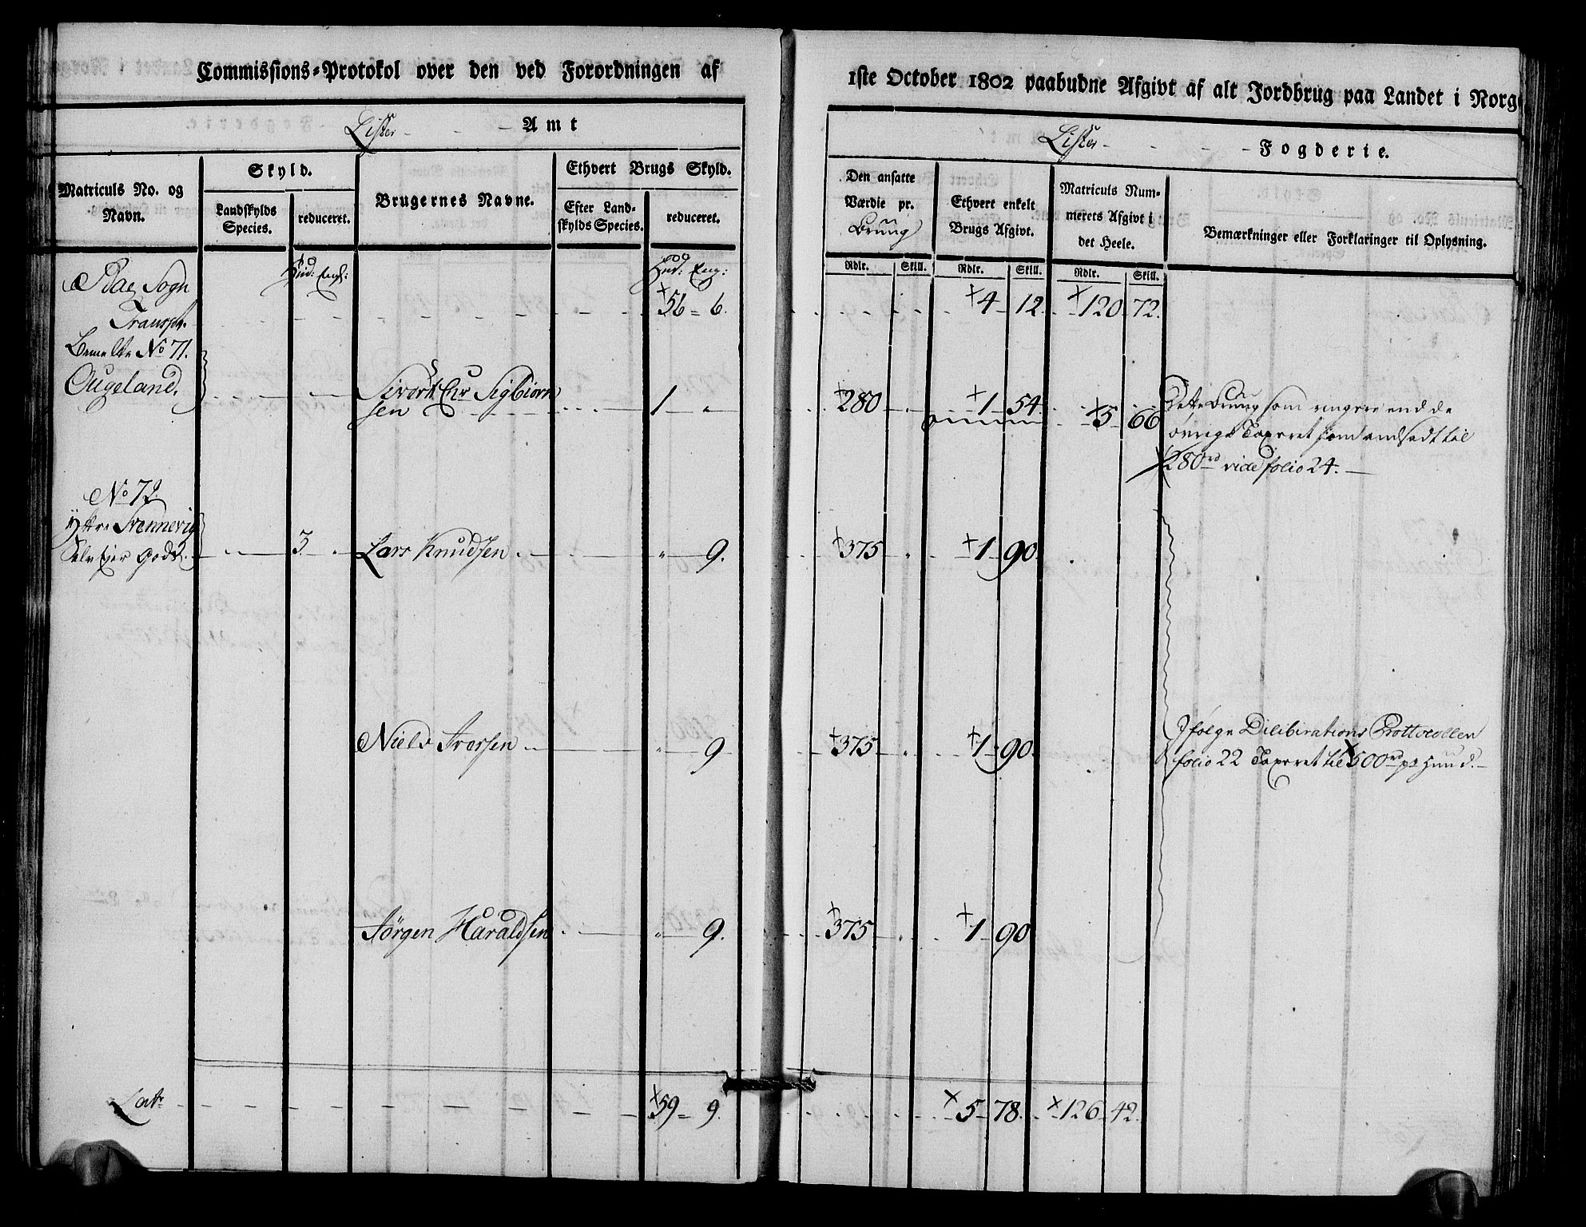 Commissions-Protokol over den ved Forordningen af
1ste October 1802 paabudne Afgivt af alt Jordbrug paa Landet i Norg
Lister Amt
Lister Fogderie.
Matriculs No. og Navn.
Skyld.
Landskylds Species.
reduceret.
Brugernes Navne.
Ethvert Brugs Skyld.
Efter Landskylds Species.
reduceret.
Den ansatte Værdie pr. Brug
Ethvert enkelt Brugs Afgivt.
Matriculs Nummerets Afgivt i det Heele.
Bemærkninger eller Forklaringer til Oplysning.
Rdlr. Skill. Rdlr. Skill. Rdlr. Skill.
Hud: Eng: Hud: Eng:
Sogn
Transpt. 56 = 6. 4 - 12. 120 72.
Bemelte No 71.
Augeland. Sivert Chr Sigbiørnsen 1 „ 280 1 54 5 66
Dette Brug som ringere end de
øvrige Taxeret samt ansadt til
280 rd vide folio 24.
No 72.
Ytre Svennevig
Selv Ejer Gods. 3 Lars Knudsen „ 9. 375 1 - 90.
Niels Iversen „ 9 375 1 - 90.
Ifølge Deliberations Prottocollen
folio 22 Taxeret til 500 rd pr Huud.
Jörgen Haraldsen „ 9. 375 1 - 90
Lat: 59 = 9. 5 - 78. 126 - 42.